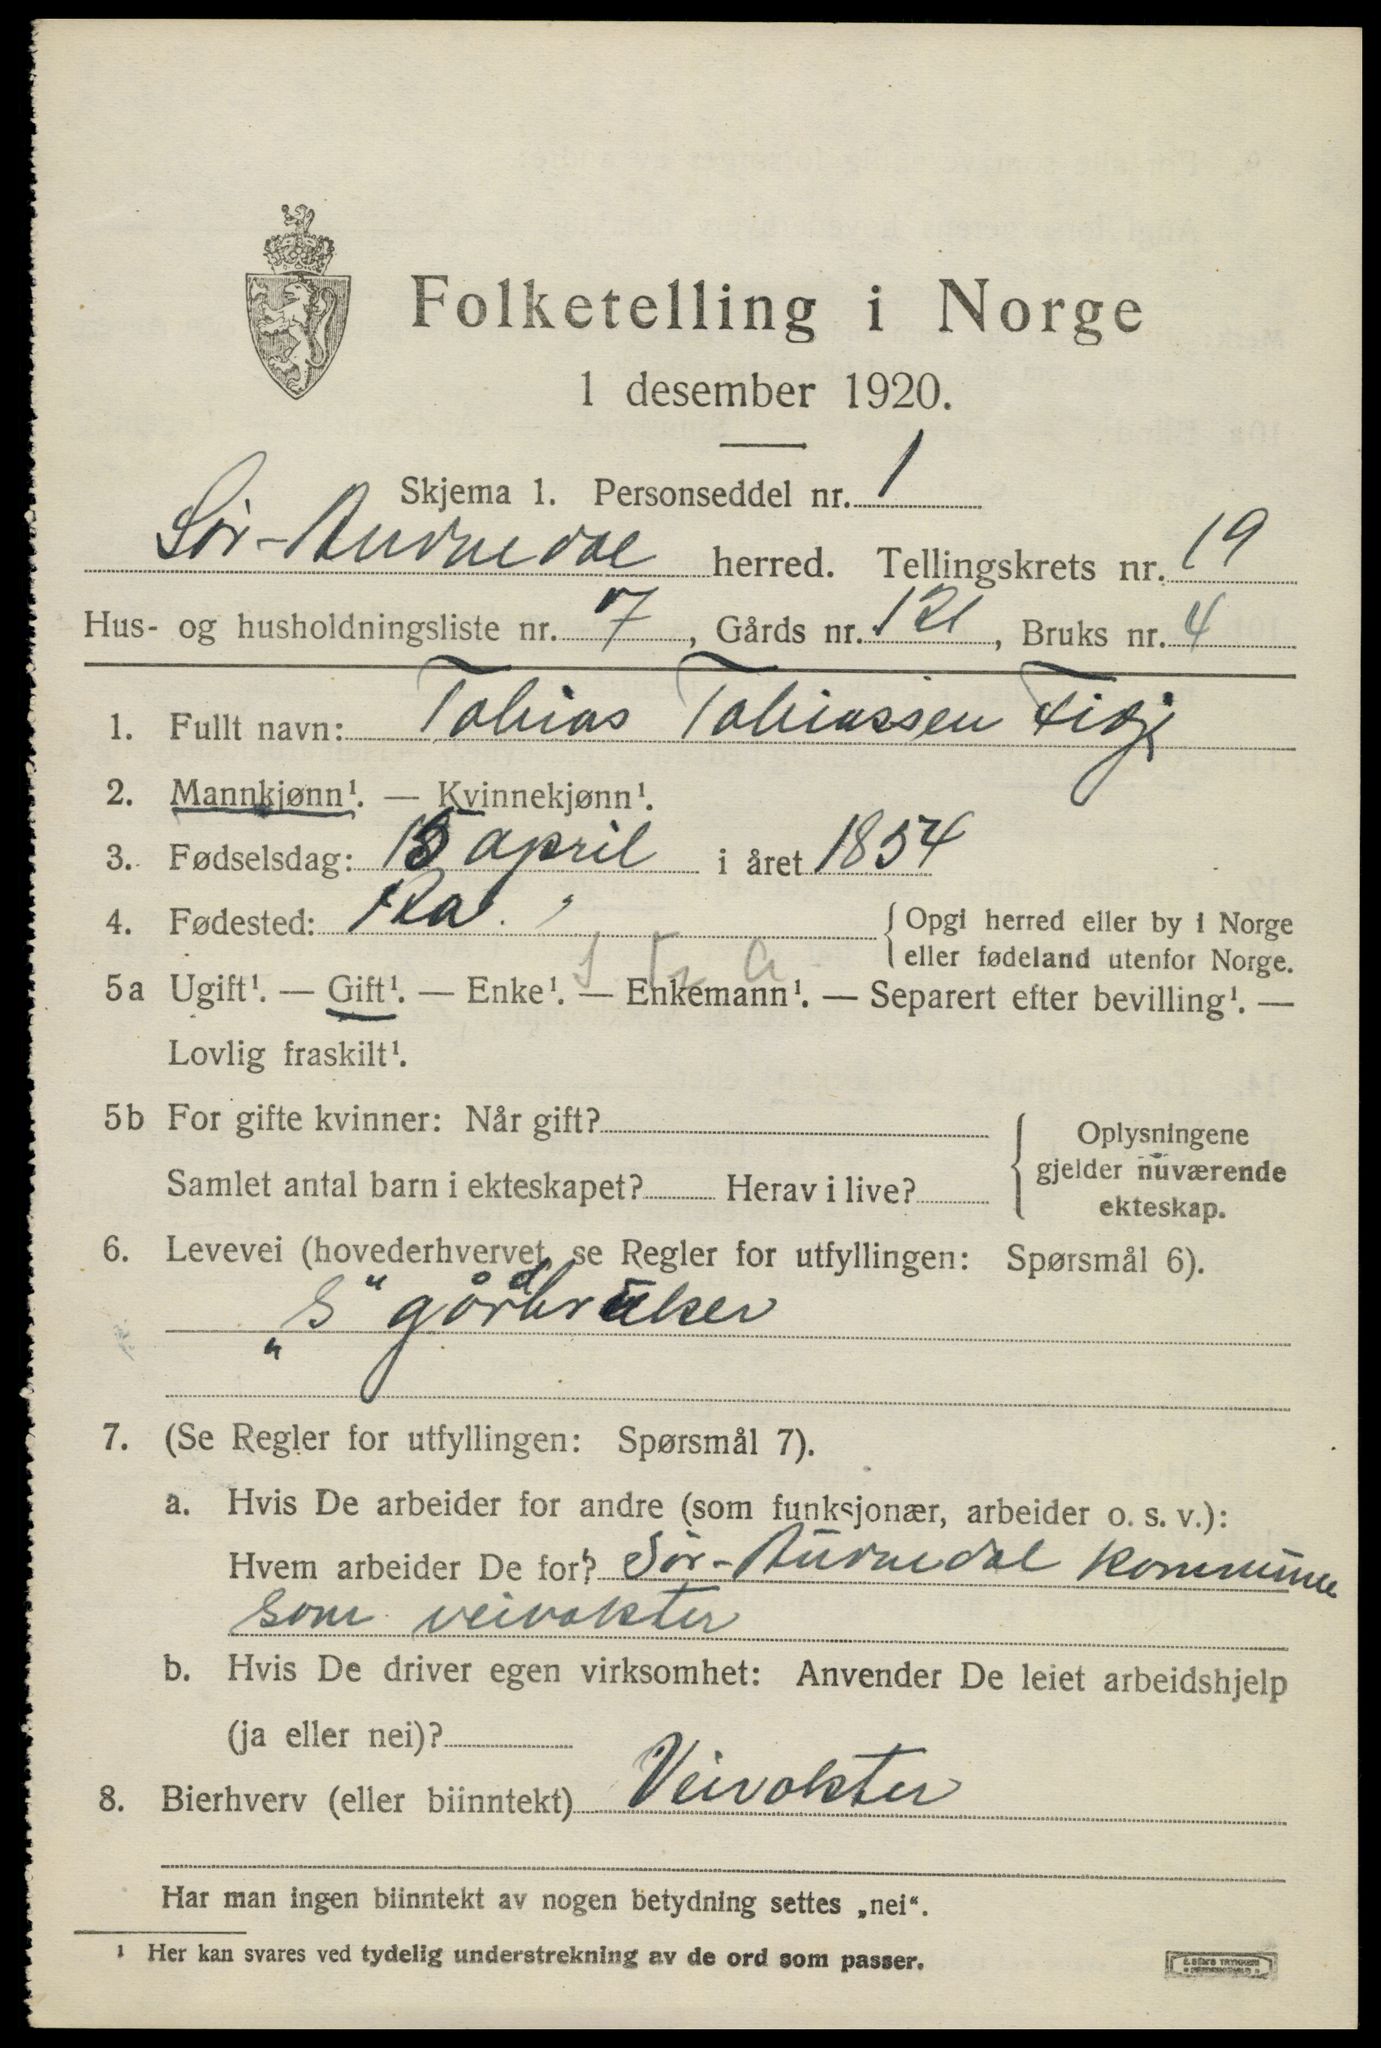 Folketelling i Norge
1 desember 1920.
Skjema 1. Personseddel nr. 1
Sør-Audnedal herred. Tellingskrets nr. 19
Hus- og husholdningsliste nr. 7, Gårds nr. 121, Bruks nr. 4
1. Fullt navn: Tobias Tobiassen
2. Mannkjønn¹. — Kvinnekjønn¹.
3. Fødselsdag: 15 april i året 1854
4. Fødested: { Opgi herred eller by i Norge
eller fødeland utenfor Norge.
5a Ugift¹. — Gift¹. — Enke¹. — Enkemann¹. — Separert efter bevilling¹. —
Lovlig fraskilt¹.
5b For gifte kvinner: Når gift? { Oplysningene
gjelder nuværende
Samlet antal barn i ekteskapet? Herav i live?
ekteskap.
6. Levevei (hovederhvervet, se Regler for utfyllingen: Spørsmål 6).
„S“ gårdbruker
7. (Se Regler for utfyllingen: Spørsmål 7).
a. Hvis De arbeider for andre (som funksjonær, arbeider o. s. v.):
Hvem arbeider De for? Sør-Audnedal kommune
som veivokter
b. Hvis De driver egen virksomhet: Anvender De leiet arbeidshjelp
(ja eller nei)?
8. Bierhverv (eller biinntekt) Veivokter
Har man ingen biinntekt av nogen betydning settes „nei“.
¹ Her kan svares ved tydelig understrekning av de ord som passer.